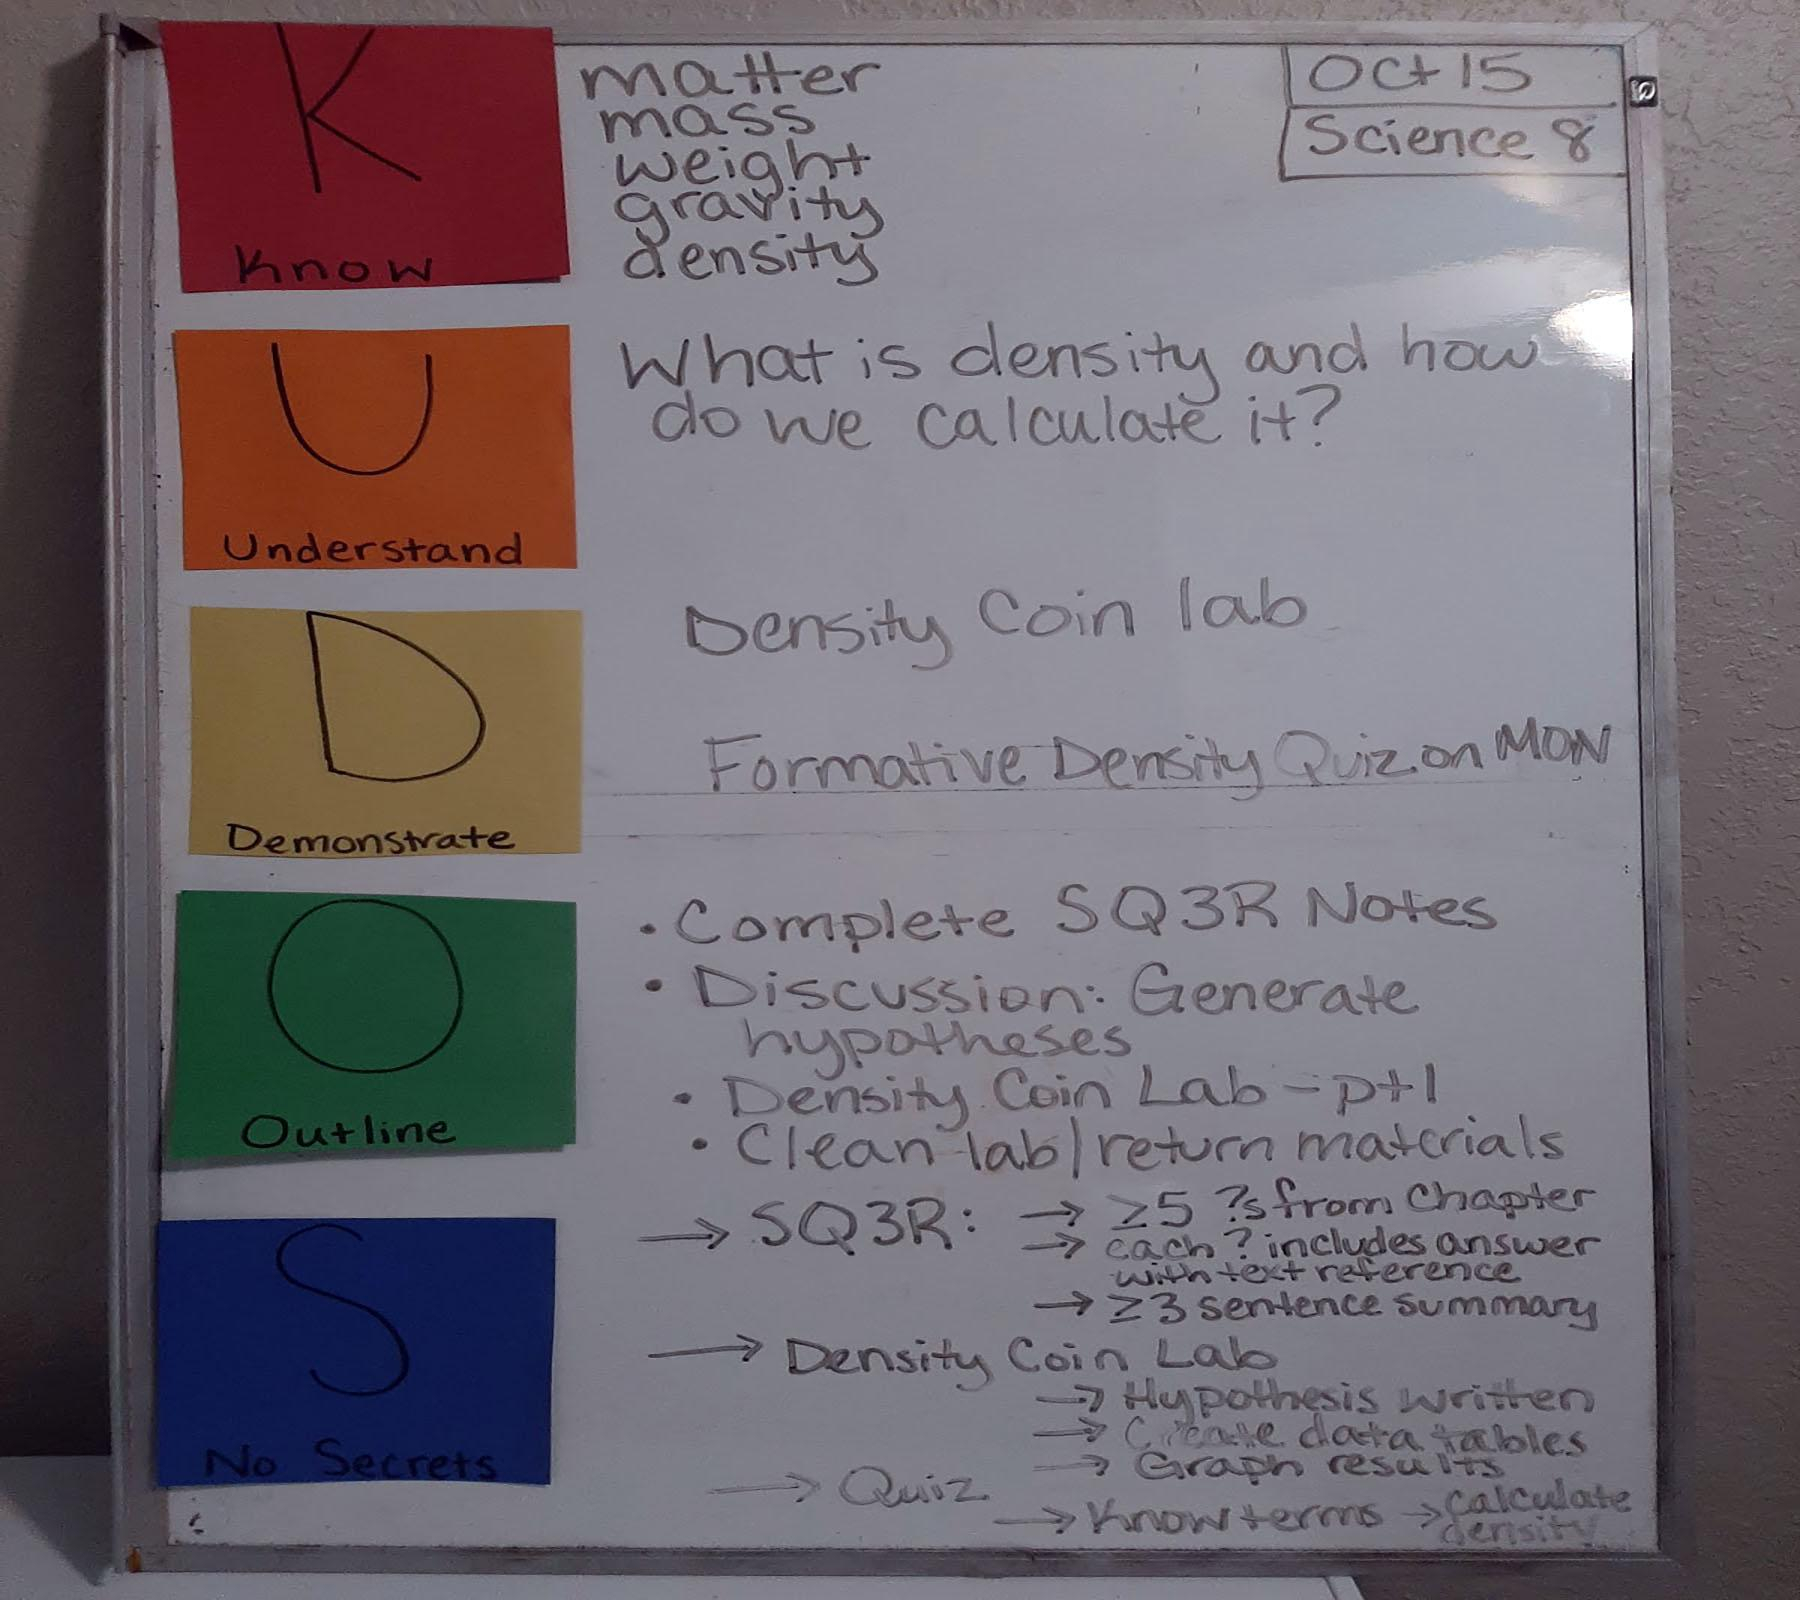 K
Know
matter
mass
weight
gravity
density
Oct 15
Science 8
U
Understand
What is density and how
do we calculate it?
D
Demonstrate
Density Coin lab
Formative Density Quiz on MON
O
Outline
• Complete SQ3R Notes
• Discussion: Generate
hypotheses
• Density Coin Lab - pt 1
• Clean lab/return materials
S
No Secrets
→ SQ3R: → ≥5 ?s from Chapter
→ each ? includes answer
with text reference
→ ≥3 sentence summary
→ Density Coin Lab
→ Hypothesis written
→ Create data tables
→ Graph results
→ Quiz
→ Know terms → calculate
density